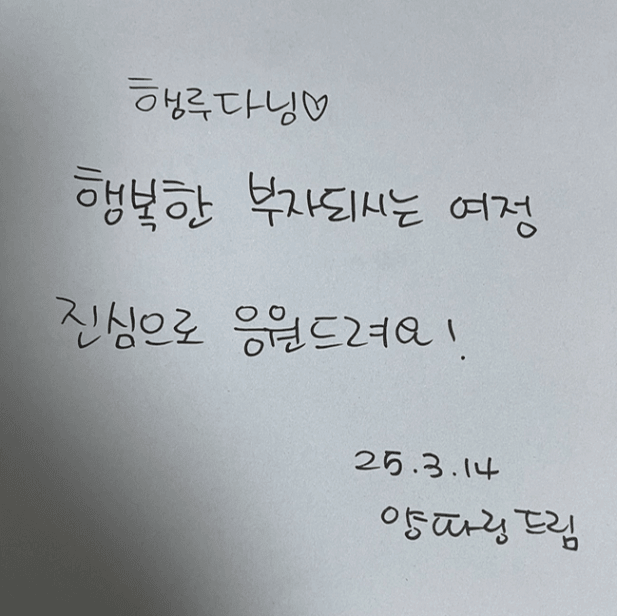 행루다님♡
행복한 부자되시는 여정
진심으로 응원드려요!
25.3.14
양파링드림